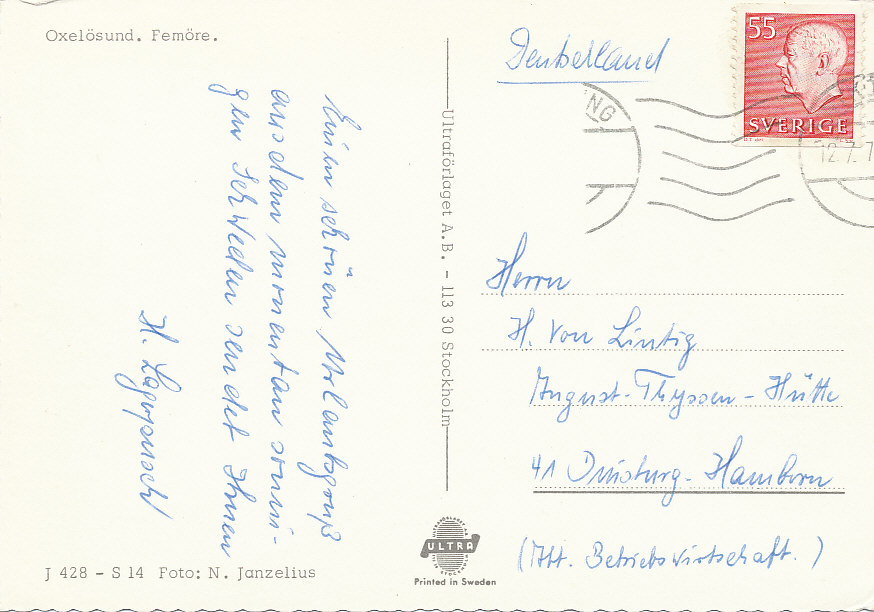 Oxelösund. Femöre.
Einen schönen Urlaubsgruß
aus dem momentan sonni-
gen Schweden sendet Ihnen
H.
J 428 - S 14 Foto: N. Janzelius
Ultraförlaget A.B. - 113 30 Stockholm
ULTRA
Printed in Sweden
Deutschland
55
SVERIGE
NG
12.7.7
Herrn
H. von Lintig
August-Thyssen-Hütte
41 Duisburg-Hamborn
(Abt. Betriebswirtschaft.)